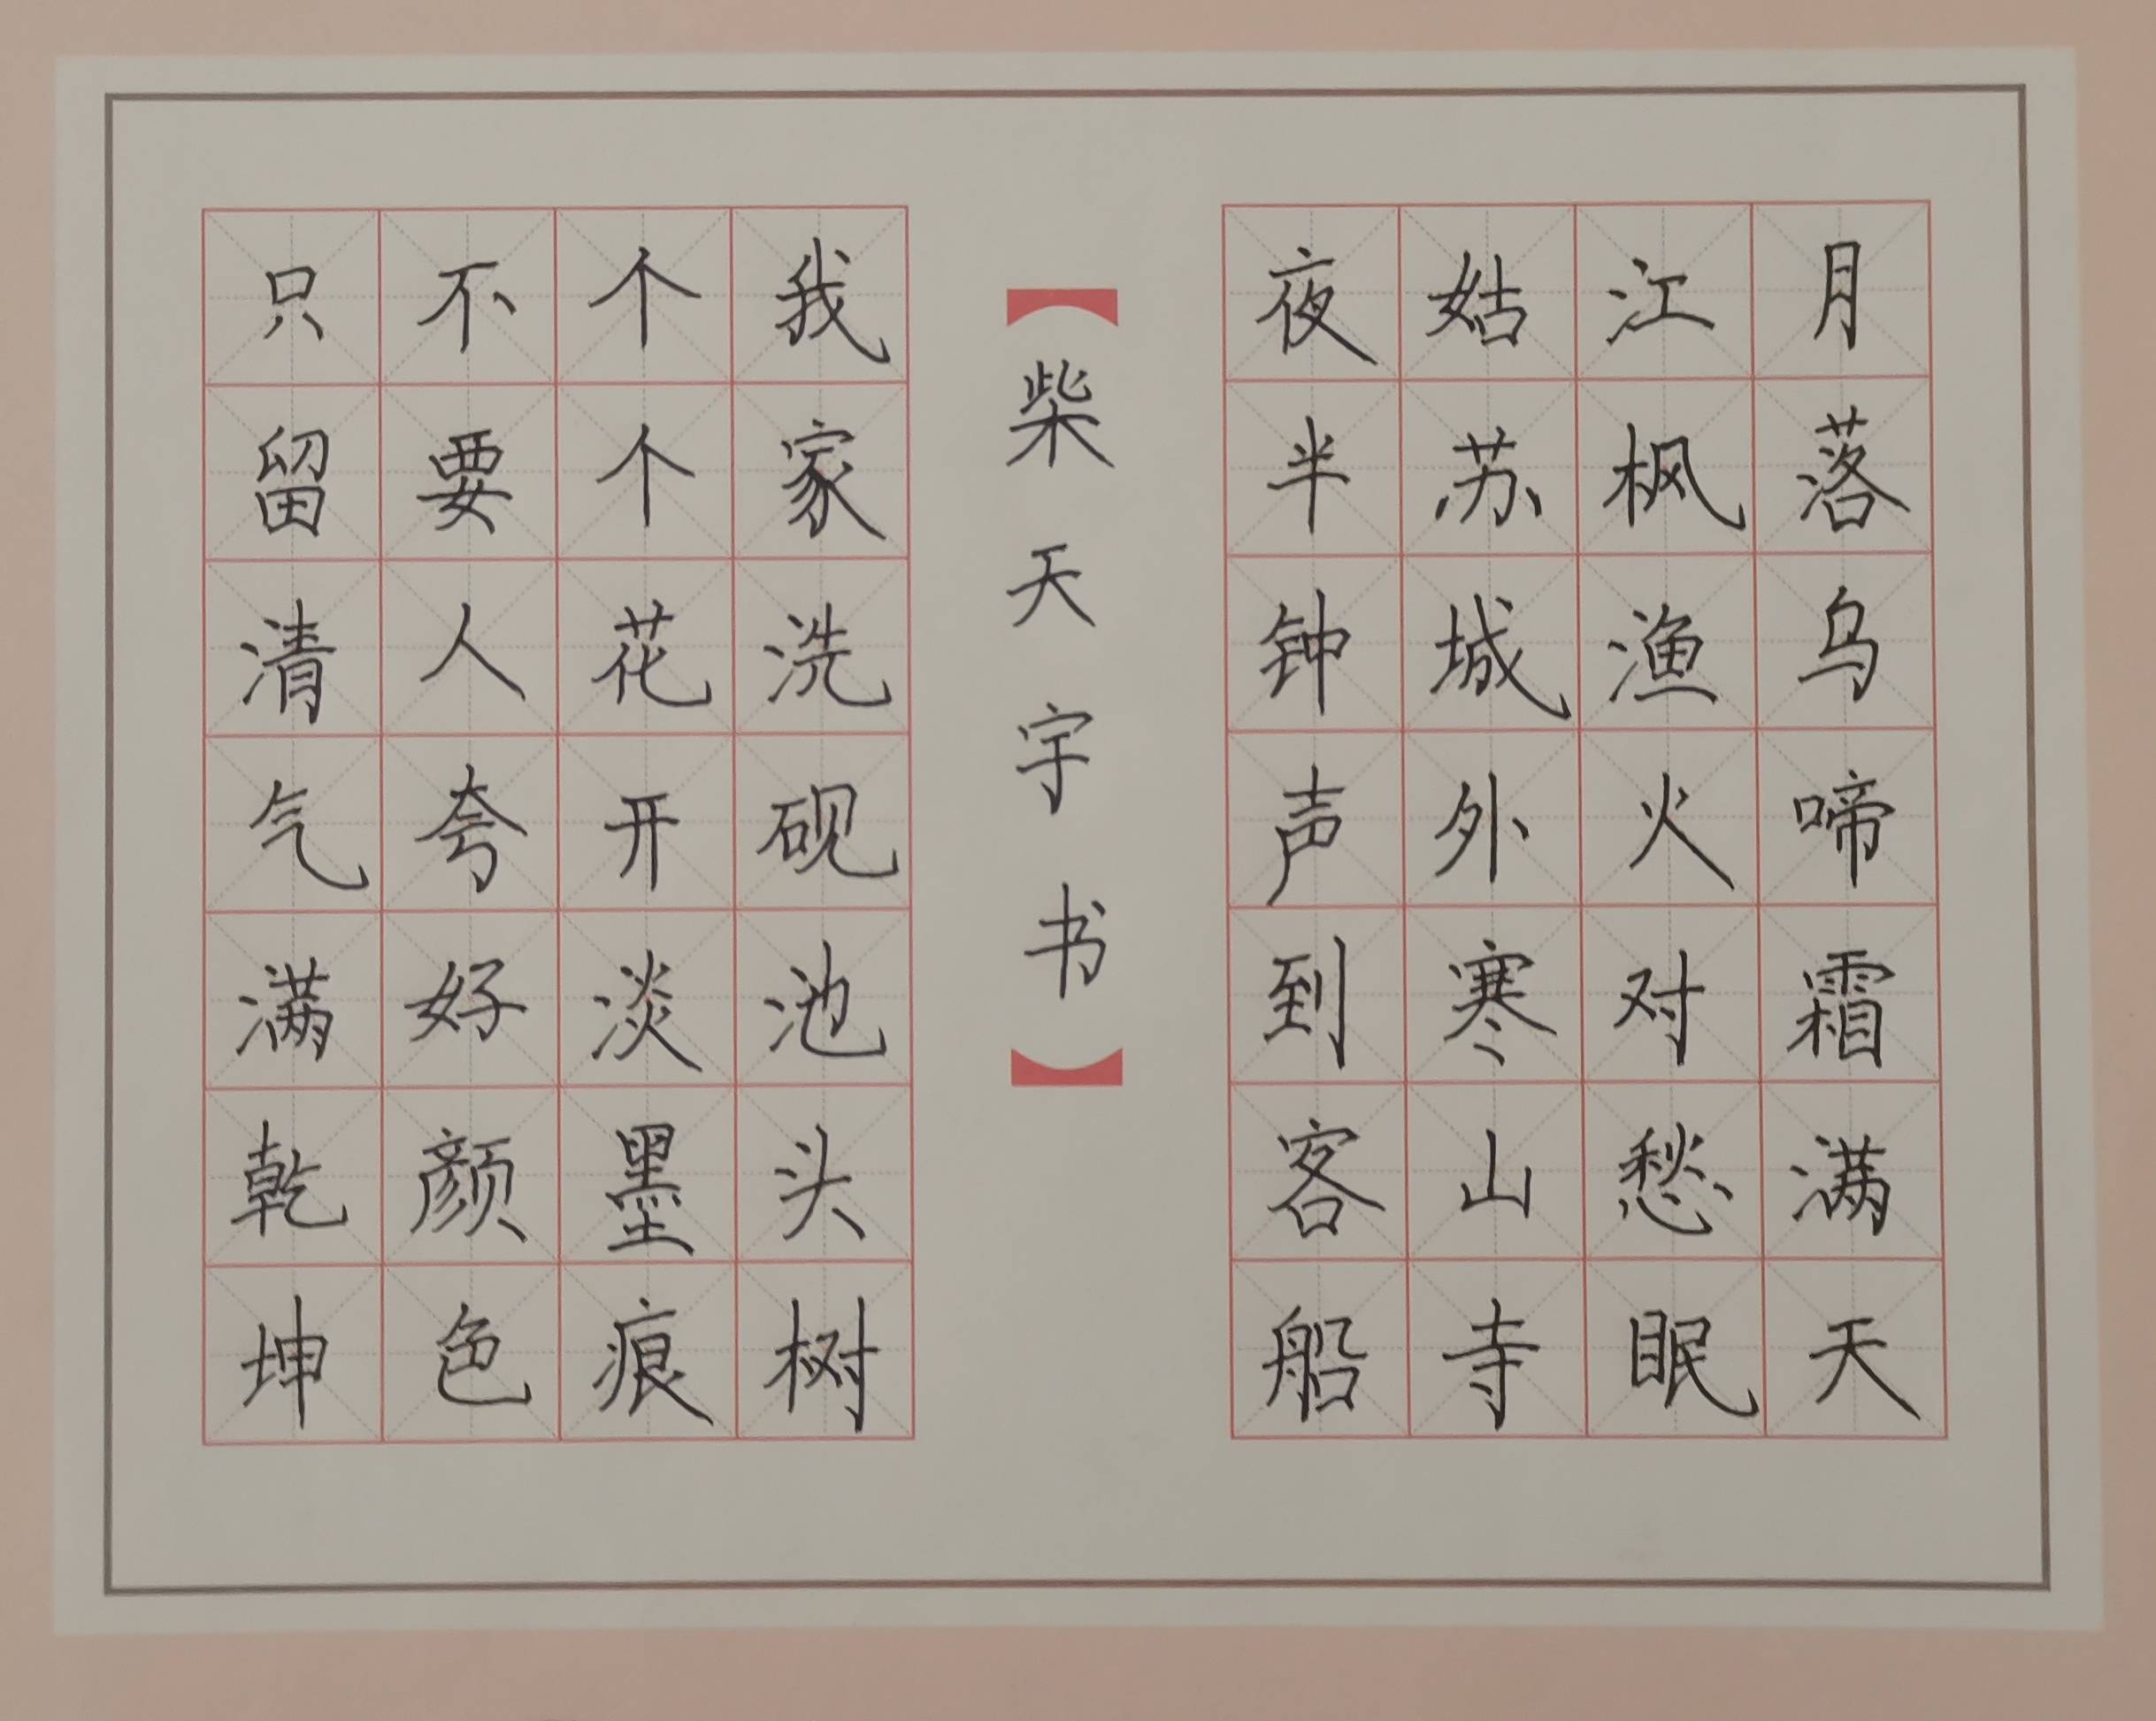 月落乌啼霜满天
江枫渔火对愁眠
姑苏城外寒山寺
夜半钟声到客船
柴天宇书
我家洗砚池头树
个个花开淡墨痕
不要人夸好颜色
只留清气满乾坤